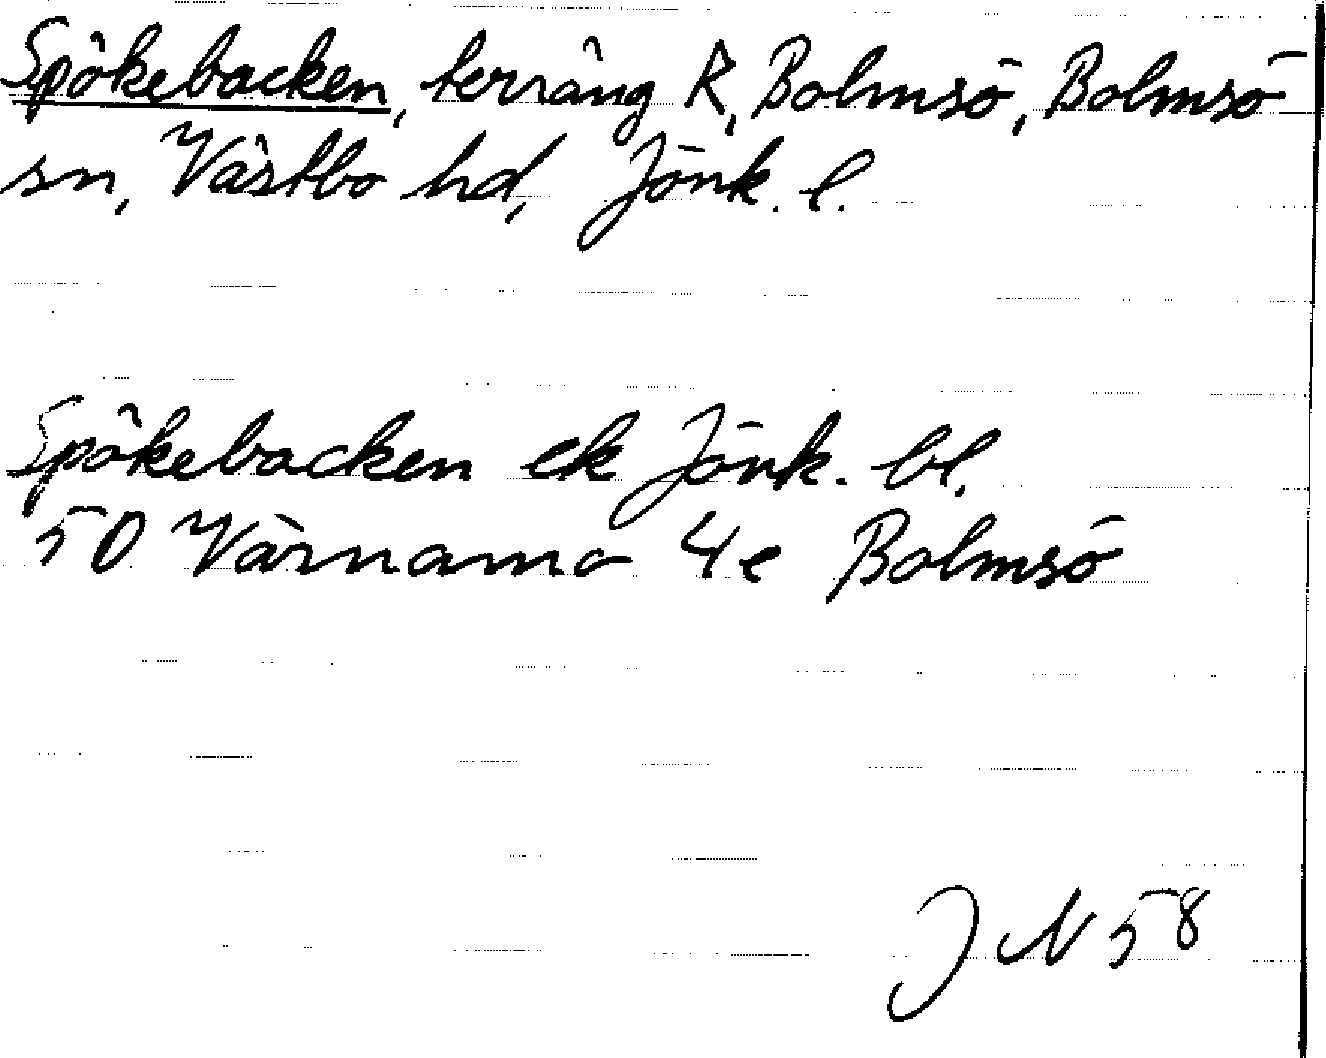 Spökebacken, terräng R, Bolmsö, Bolmsö
sn, Västbo hd, Jönk. l.
Spökebacken ek Jönk. bl.
50 Värnamo 4e Bolmsö
J N 58